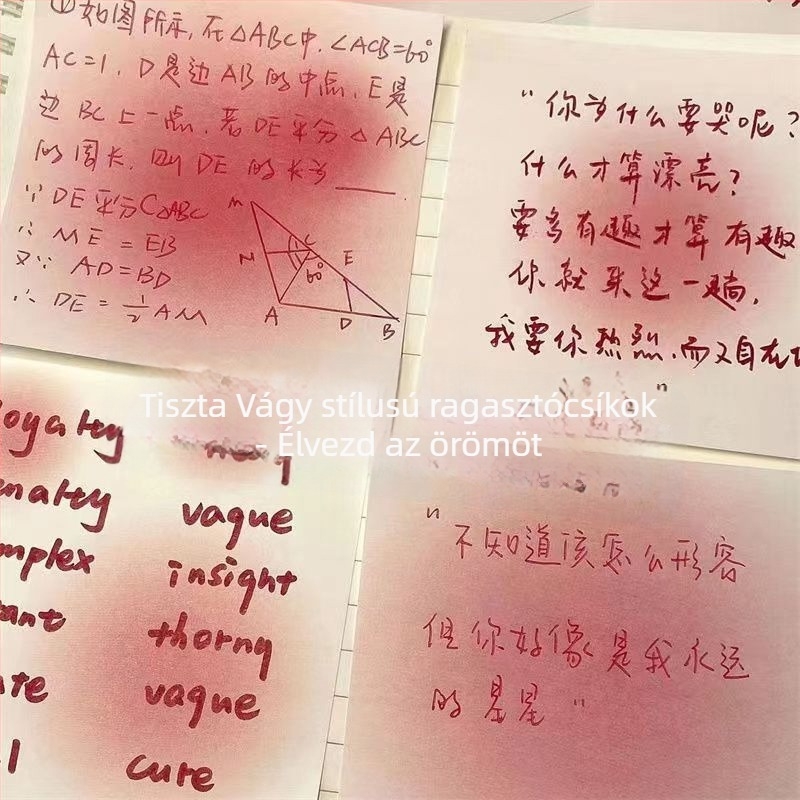 ①如图所示,在△ABC中,∠ACB=60°
AC=1,D是边AB的中点,E是
边BC上一点,若DE平分△ABC
的周长,则DE的长为____
∵DE平分C△ABC
∴ME=EB
又∵AD=BD
∴DE=½AM
M
N
C
60°
E
A
D
B
"你为什么要哭呢?
什么才算漂亮?
要多有趣才算有趣
你就来这一趟,
我要你热烈,而又自在
"
Tiszta Vágy stílusú ragasztócsíkok
- Élvezd az örömöt
oyalty
enalty
mplex
ant
te
l
vague
insight
thorny
vague
cure
"不知道该怎么形容
但你好像是我永远
的星星"